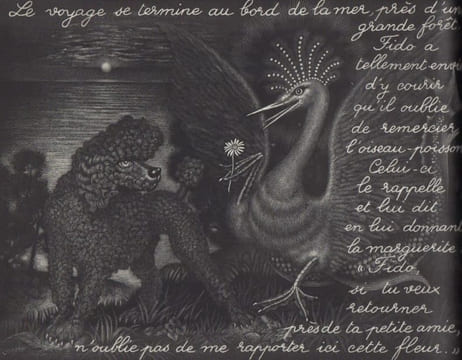 Le voyage se termine au bord de la mer, près d'un
grande forêt.
Fido a
tellement
d'y courir
qu'il oublie
de remercier
l'oiseau-poisson
Celui-ci
le rappelle
et lui dit
en lui donnant
la marguerite
« Fido,
si tu veux
retourner
près de ta petite amie,
n'oublie pas de me rapporter ici cette fleur.. »